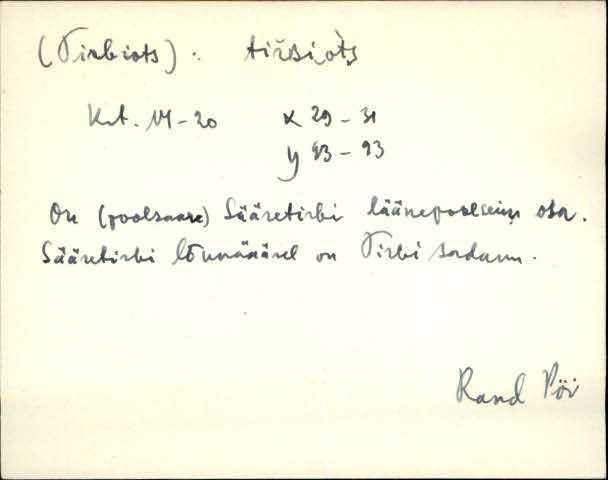 (Tirbiots): tirbiots
Krt. VI-20 x 29-31
y 93-93
On (poolsaare) Sääretirbi läänepoolseim osa.
Sääretirbi lõunaäärel on Tirbi sadam.
Rand Pöi